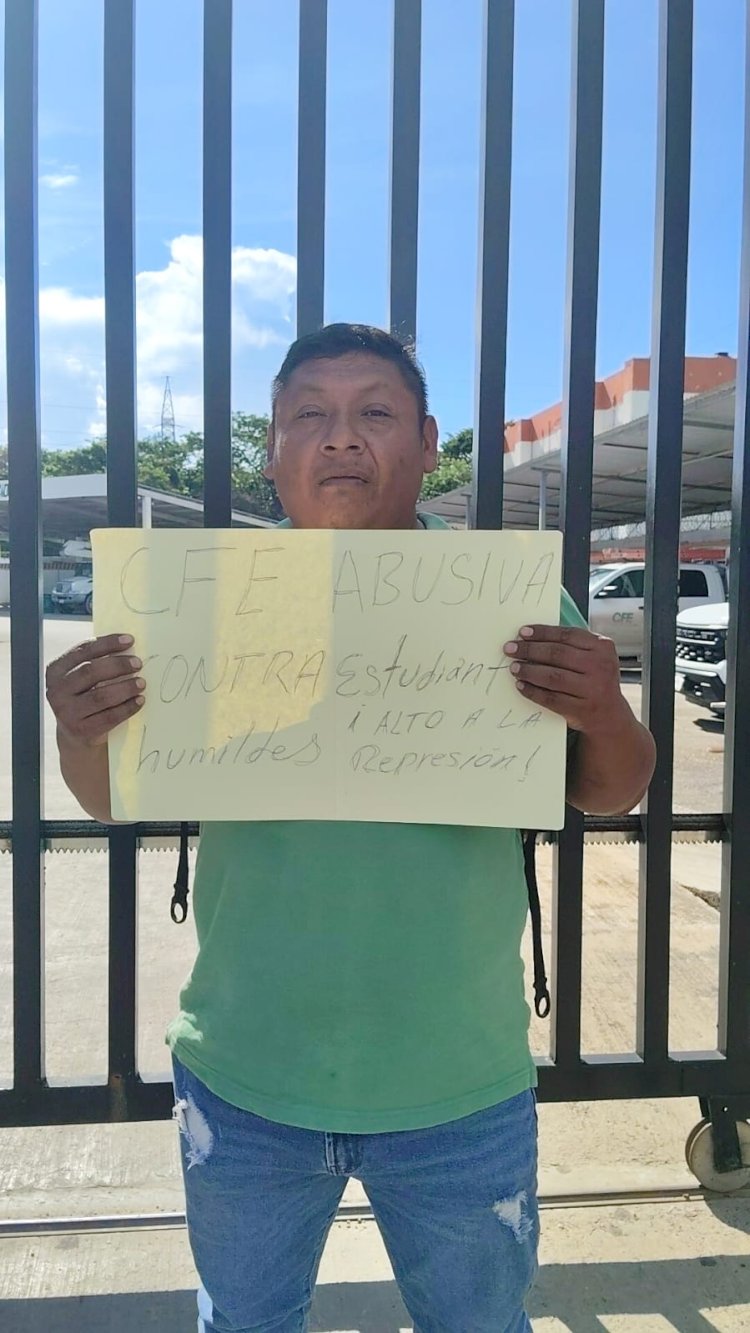 CFE ABUSIVA
CONTRA Estudiant
humildes ¡ALTO A LA
Represión!
CFE